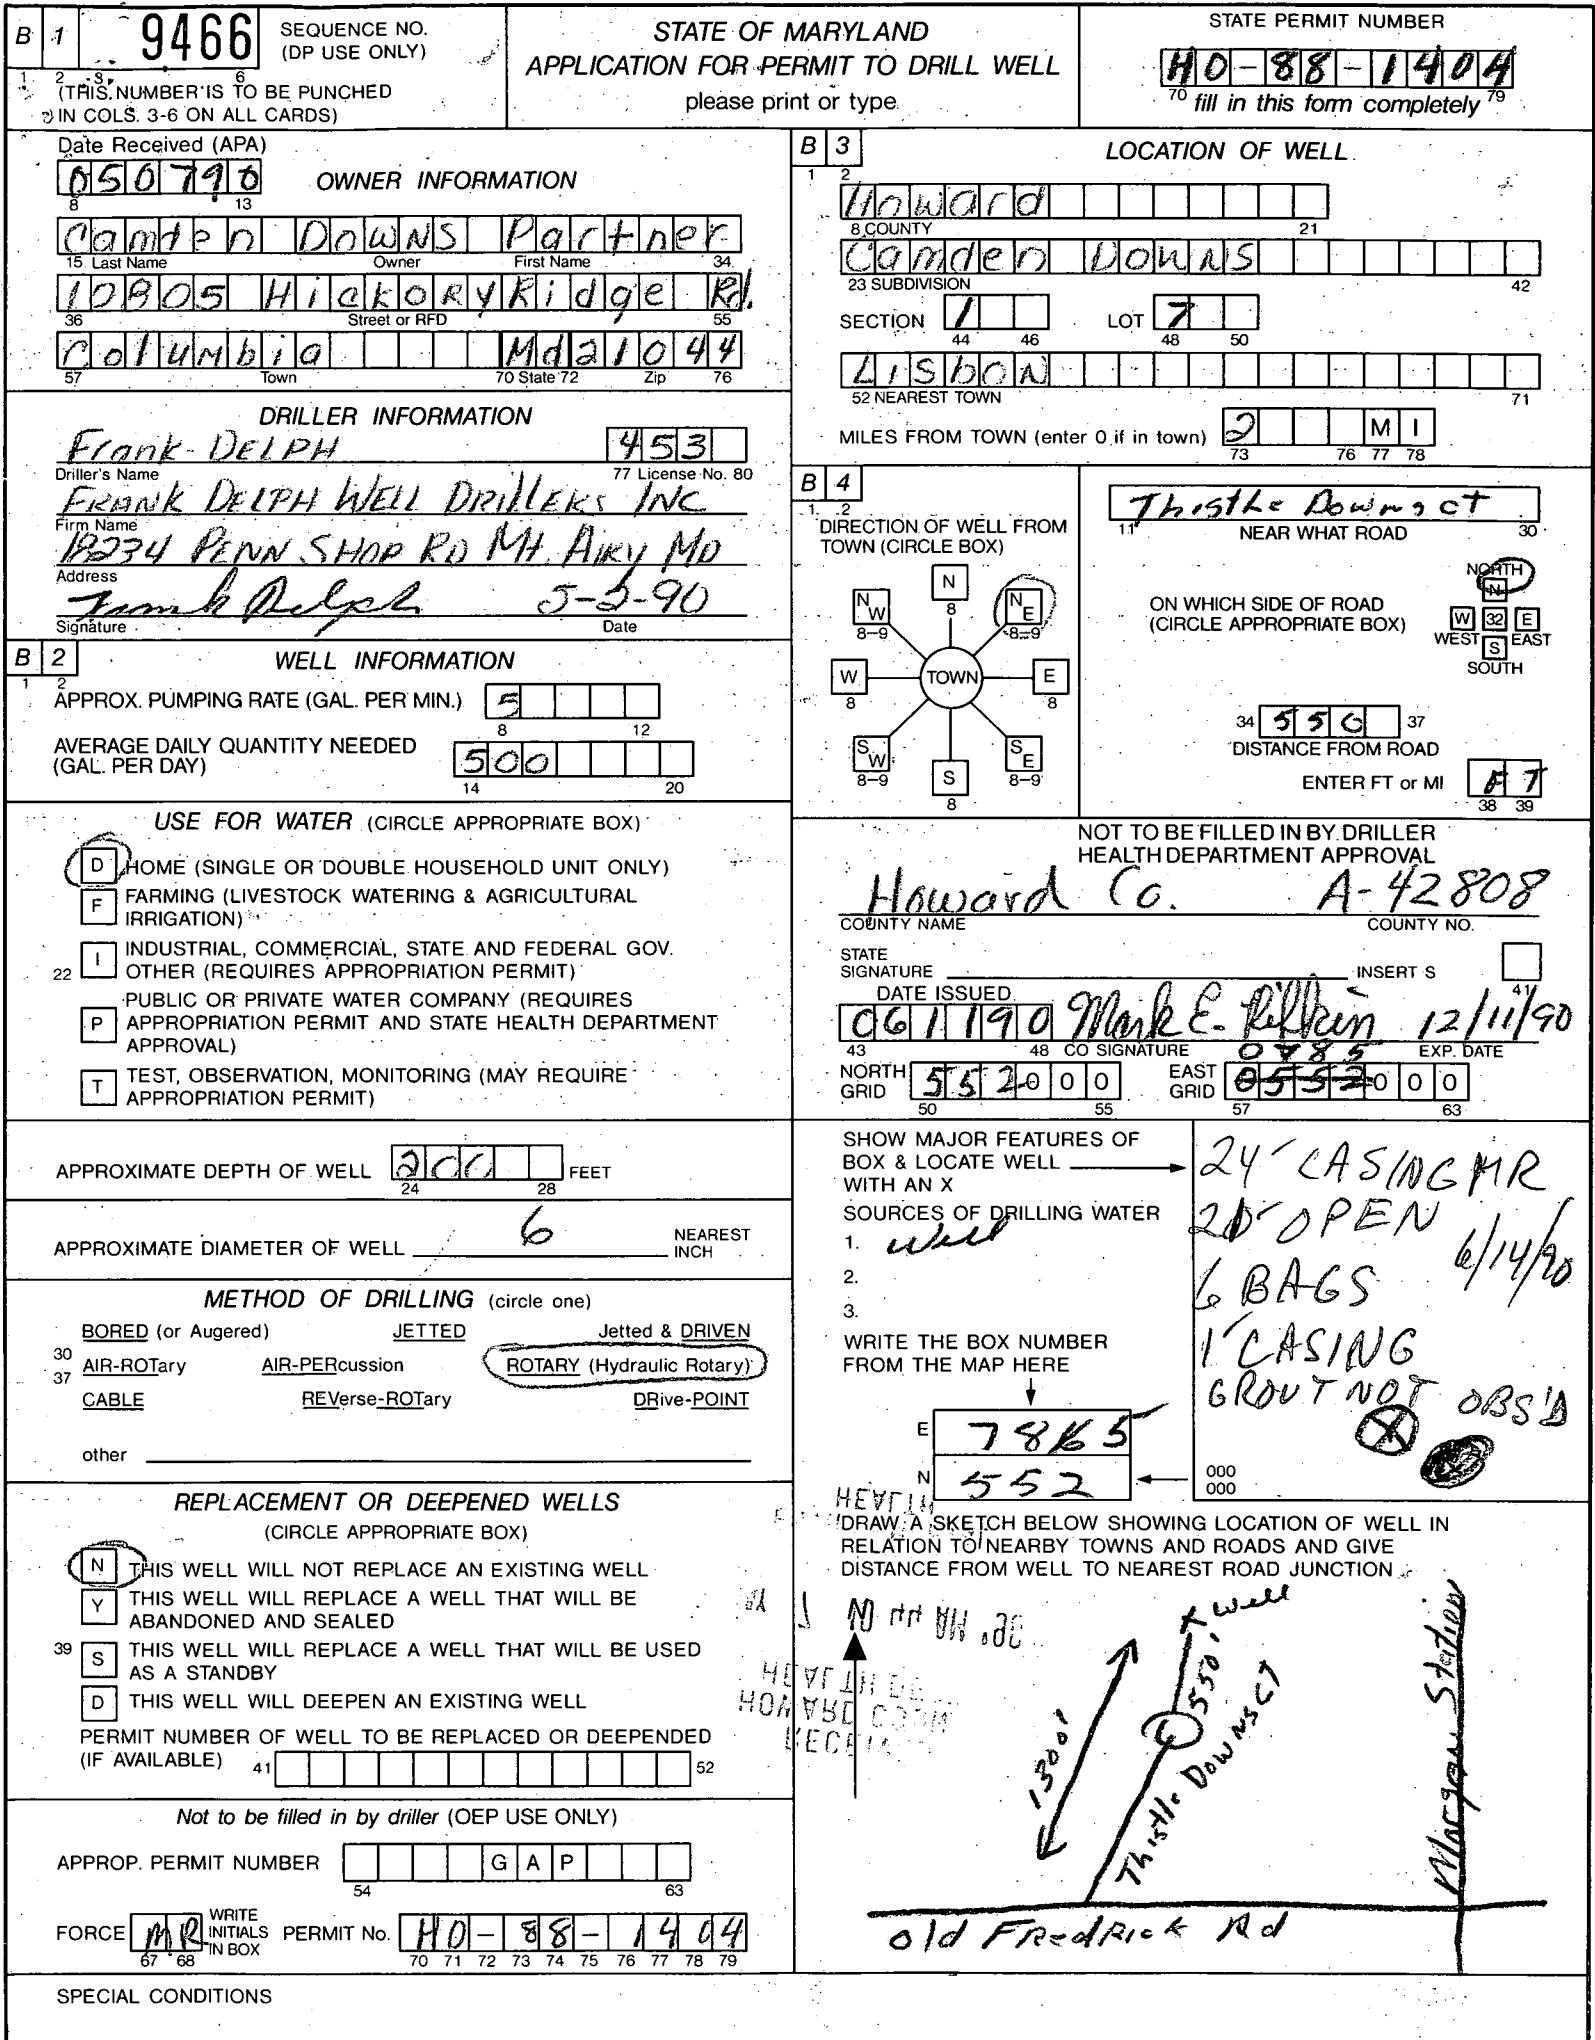 B 1 9466 SEQUENCE NO. (DP USE ONLY)
1 2 3 6
(THIS NUMBER IS TO BE PUNCHED
IN COLS. 3-6 ON ALL CARDS)
STATE OF MARYLAND
APPLICATION FOR PERMIT TO DRILL WELL
please print or type
STATE PERMIT NUMBER
HO-88-1404
70 fill in this form completely 79
Date Received (APA)
050790
8 13
OWNER INFORMATION
Camden Downs Partner
15 Last Name Owner First Name 34
10805 HickoryRidge Rd.
36 Street or RFD 55
Columbia Md21044
57 Town 70 State 72 Zip 76
DRILLER INFORMATION
Frank DELPH 453
Driller's Name 77 License No. 80
FRANK DELPH WELL DRILLERS INC
Firm Name
18234 PENN SHOP RD Mt. AIRY MD
Address
Frank Delph 5-2-90
Signature Date
B 2 WELL INFORMATION
1 2
APPROX. PUMPING RATE (GAL. PER MIN.) 5
8 12
AVERAGE DAILY QUANTITY NEEDED
(GAL. PER DAY) 500
14 20
USE FOR WATER (CIRCLE APPROPRIATE BOX)
D HOME (SINGLE OR DOUBLE HOUSEHOLD UNIT ONLY)
F FARMING (LIVESTOCK WATERING & AGRICULTURAL
IRRIGATION)
22 I INDUSTRIAL, COMMERCIAL, STATE AND FEDERAL GOV.
OTHER (REQUIRES APPROPRIATION PERMIT)
P PUBLIC OR PRIVATE WATER COMPANY (REQUIRES
APPROPRIATION PERMIT AND STATE HEALTH DEPARTMENT
APPROVAL)
T TEST, OBSERVATION, MONITORING (MAY REQUIRE
APPROPRIATION PERMIT)
APPROXIMATE DEPTH OF WELL 200 FEET
24 28
APPROXIMATE DIAMETER OF WELL 6 NEAREST
INCH
METHOD OF DRILLING (circle one)
BORED (or Augered) JETTED Jetted & DRIVEN
30 AIR-ROTary AIR-PERcussion ROTARY (Hydraulic Rotary)
37
CABLE REVerse-ROTary DRive-POINT
other
REPLACEMENT OR DEEPENED WELLS
(CIRCLE APPROPRIATE BOX)
N THIS WELL WILL NOT REPLACE AN EXISTING WELL
Y THIS WELL WILL REPLACE A WELL THAT WILL BE
ABANDONED AND SEALED
39 S THIS WELL WILL REPLACE A WELL THAT WILL BE USED
AS A STANDBY
D THIS WELL WILL DEEPEN AN EXISTING WELL
PERMIT NUMBER OF WELL TO BE REPLACED OR DEEPENDED
(IF AVAILABLE) 41 52
Not to be filled in by driller (OEP USE ONLY)
APPROP. PERMIT NUMBER G A P
54 63
FORCE MR WRITE INITIALS IN BOX PERMIT No. HO-88-1404
67 68 70 71 72 73 74 75 76 77 78 79
SPECIAL CONDITIONS
B 3 LOCATION OF WELL
1 2
Howard
8 COUNTY 21
Camden Downs
23 SUBDIVISION 42
SECTION 1 LOT 7
44 46 48 50
LISbON
52 NEAREST TOWN 71
MILES FROM TOWN (enter 0 if in town) 2 M I
73 76 77 78
B 4
1 2
DIRECTION OF WELL FROM
TOWN (CIRCLE BOX)
N
8
NW NE
8-9 8-9
W TOWN E
8 8
SW SE
8-9 8-9
S
8
Thisthe Downs ct
11 NEAR WHAT ROAD 30
ON WHICH SIDE OF ROAD
(CIRCLE APPROPRIATE BOX)
NORTH
N
W 32 E
WEST EAST
S
SOUTH
34 550 37
DISTANCE FROM ROAD
ENTER FT or MI FT
38 39
NOT TO BE FILLED IN BY DRILLER
HEALTH DEPARTMENT APPROVAL
Howard Co. A-42808
COUNTY NAME COUNTY NO.
STATE
SIGNATURE INSERT S
41
DATE ISSUED
061190 Mark E. Rifkin 12/11/90
43 48 CO SIGNATURE EXP. DATE
0785
NORTH GRID 552000 EAST GRID 0552000
50 55 57 63
SHOW MAJOR FEATURES OF
BOX & LOCATE WELL
WITH AN X
SOURCES OF DRILLING WATER
1. Well
2.
3.
WRITE THE BOX NUMBER
FROM THE MAP HERE
E 785
N 552
24' CASING MR
20' OPEN
6/14/90
6 BAGS
1' CASING
GROUT NOT OBS'D
000
000
DRAW A SKETCH BELOW SHOWING LOCATION OF WELL IN
RELATION TO NEARBY TOWNS AND ROADS AND GIVE
DISTANCE FROM WELL TO NEAREST ROAD JUNCTION
N
X Well
550'
1300'
Thistle Downs CT
Morgan Station
old FRedRick Rd